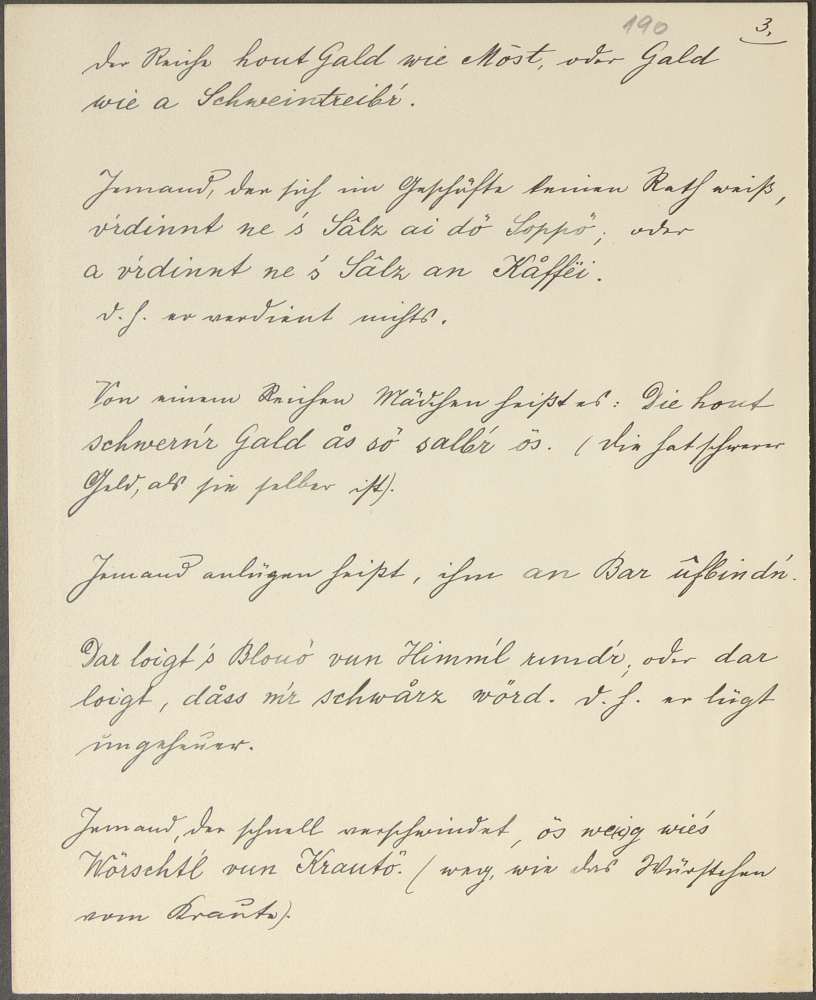 190 3.
der Reiche hout Gald wie Möst, oder Gald
wie a Schweintreibr̓.
Jemand, der sich im Geschäfte keinen Rath weiß,
vr̓dinnt ne 's Sâlz ai dö Soppö; oder
a vr̓dinnt ne 's Sâlz an Kåffëi.
d. h. er verdient nichts.
Von einem Reichen Mädchen heißt es: Die hout
schwern̓r Gald ås sö salbr̓ ös. (Die hat schwerer
Geld, als sie selber ist).
Jemand anlügen heißt, ihm an Bar ûfbindn̓.
Dar loigt 's Blouö vun Himml̓ rundr̓, oder dar
loigt, dåss mr̓ schwårz wörd. d. h. er lügt
ungeheuer.
Jemand, der schnell verschwindet, ös weig wie's
Wörschtl̓ vun Krautö. (weg, wie das Würstchen
vom Kraute).